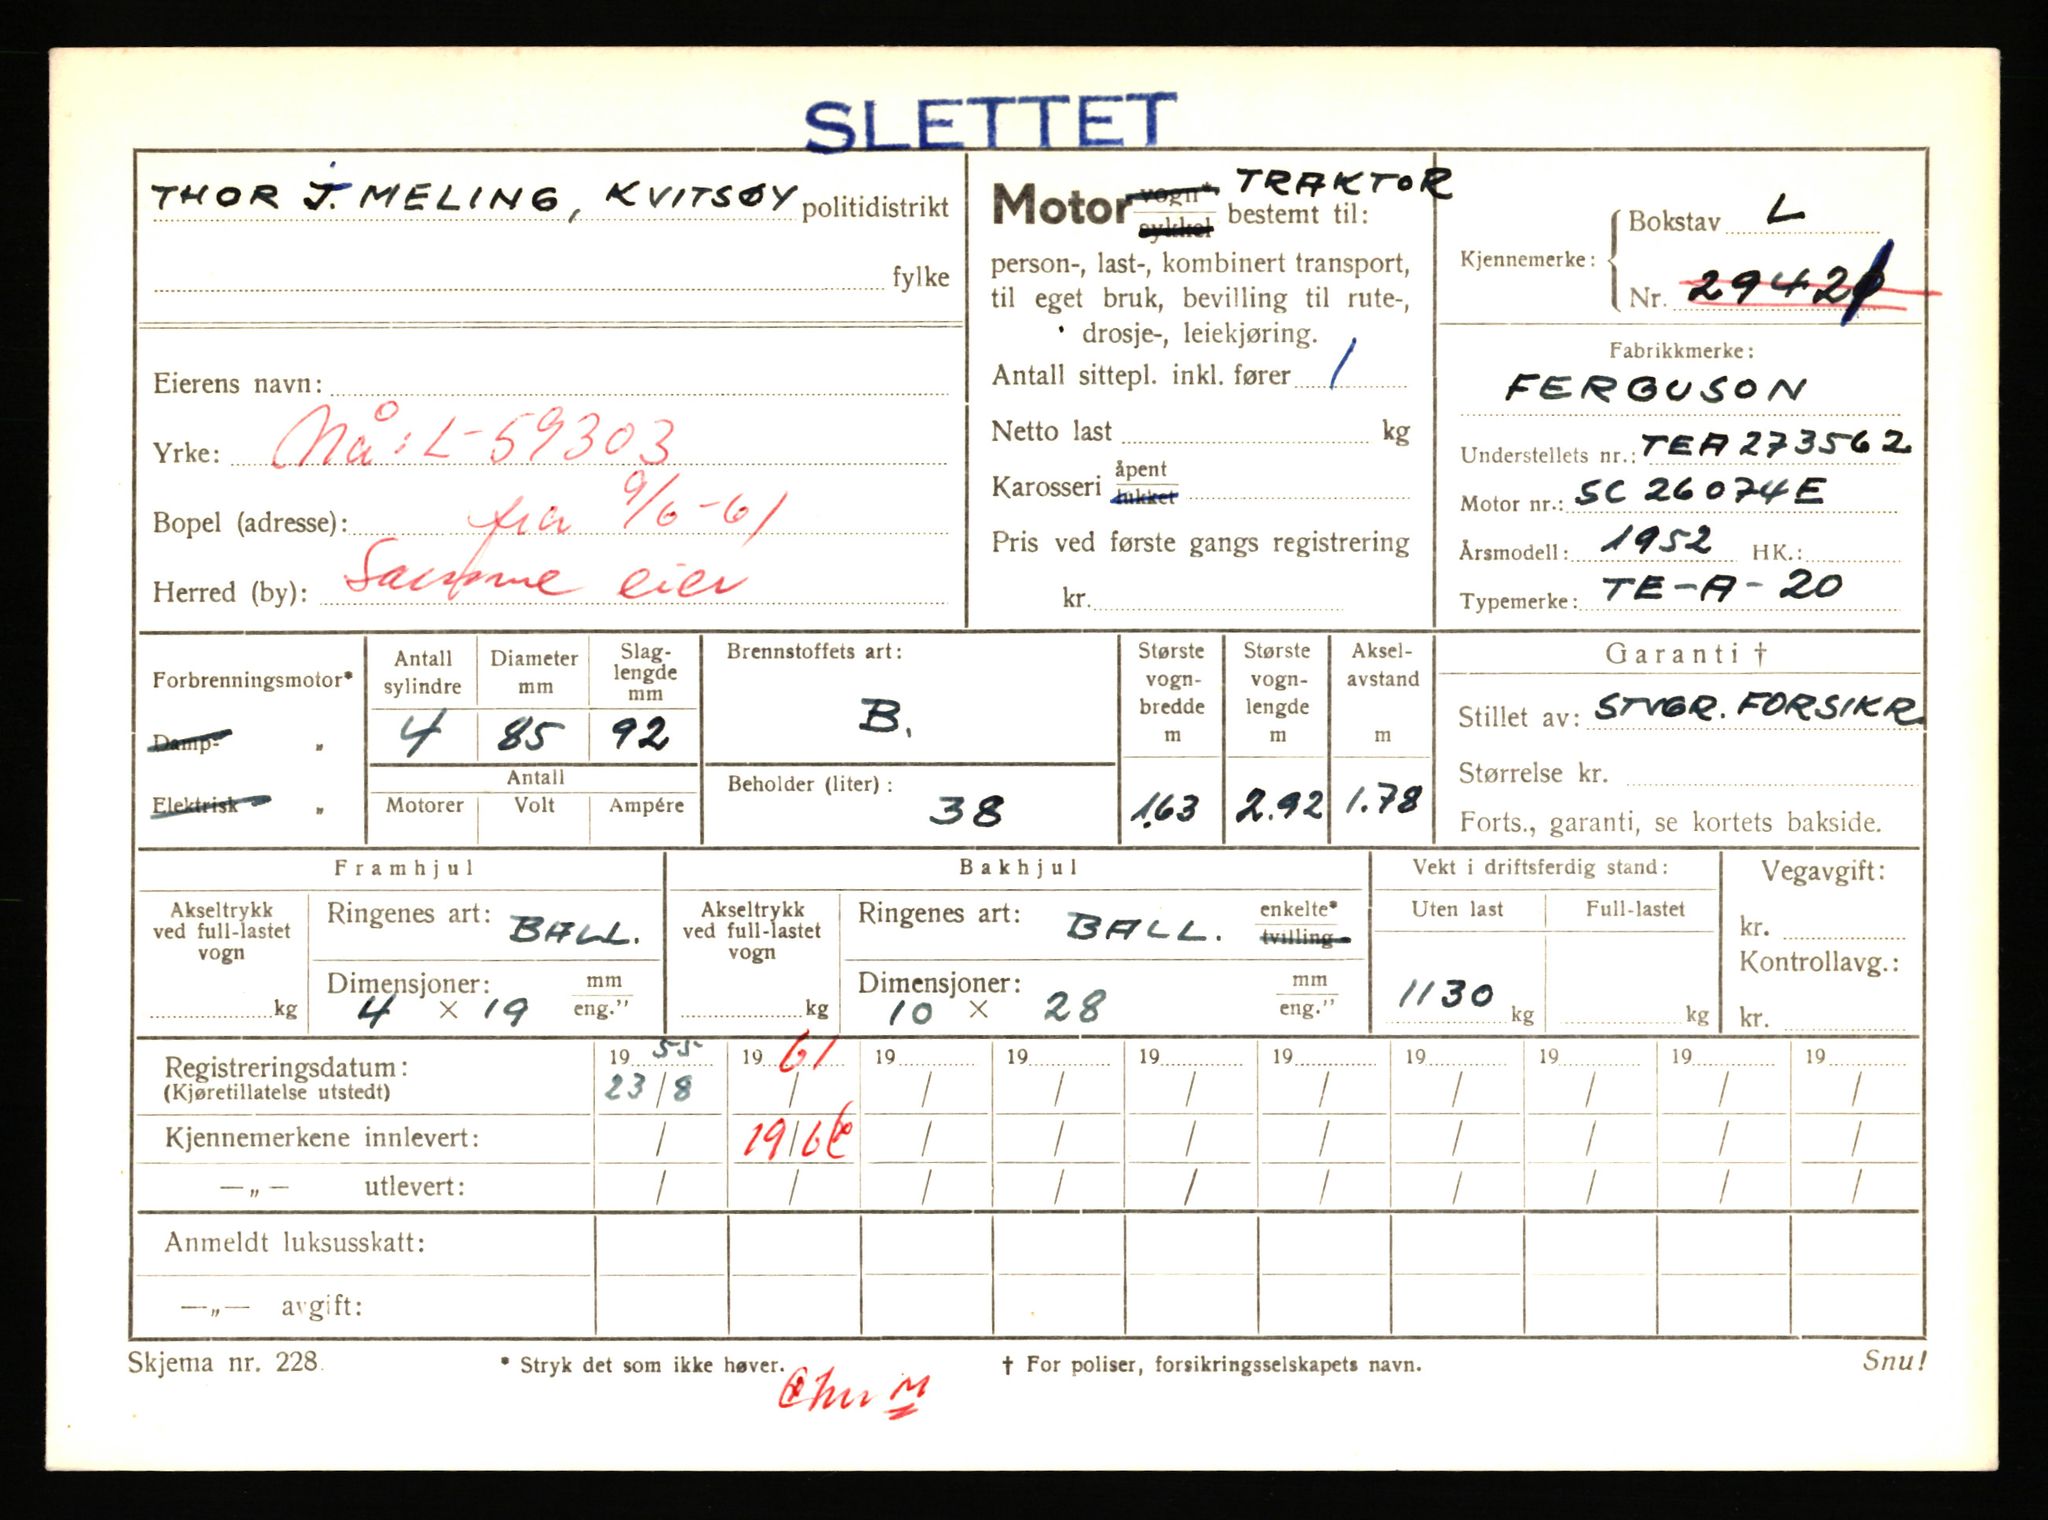 SLETTET
THOR J. MELING, KVITSØY politidistrikt
fylke
Eierens navn:
Yrke: Nå: L-59303
Bopel (adresse): fra 9/6-61
Herred (by): Samme eier
Motor vogn* sykkel TRAKTOR bestemt til:
person-, last-, kombinert transport,
til eget bruk, bevilling til rute-,
drosje-, leiekjøring.
Antall sittepl. inkl. fører 1
Netto last kg
Karosseri åpent lukket
Pris ved første gangs registrering
kr.
Kjennemerke: Bokstav L
Nr. 2942
Fabrikkmerke:
FERGUSON
Understellets nr.: TEA 273562
Motor nr.: SC 26074E
Årsmodell: 1952 HK.:
Typemerke: TE-A-20
Forbrenningsmotor*
Damp- „
Elektrisk „
Antall sylindre 4
Diameter mm 85
Slaglengde mm 92
Antall
Motorer Volt Ampére
Brennstoffets art:
B.
Beholder (liter): 38
Største vognbredde m 1.63
Største vognlengde m 2.92
Akselavstand m 1.78
Garanti †
Stillet av: STVGR. FORSIKR.
Størrelse kr.
Forts., garanti, se kortets bakside.
Framhjul
Akseltrykk ved full-lastet vogn kg
Ringenes art: BALL.
Dimensjoner: mm eng.”
4 × 19
Bakhjul
Akseltrykk ved full-lastet vogn kg
Ringenes art: BALL. enkelte* tvilling
Dimensjoner: mm eng.”
10 × 28
Vekt i driftsferdig stand:
Uten last Full-lastet
1130 kg kg
Vegavgift:
kr.
Kontrollavg.:
kr.
Registreringsdatum: 19 55 19 61 19 19 19 19 19 19 19 19
(Kjøretillatelse utstedt) 23/8 / / / / / / / / /
Kjennemerkene innlevert: / 19/6 / / / / / / / /
—„— utlevert: / / / / / / / / / /
Anmeldt luksusskatt:
—„— avgift:
Skjema nr. 228. * Stryk det som ikke høver. † For poliser, forsikringsselskapets navn. Snu!